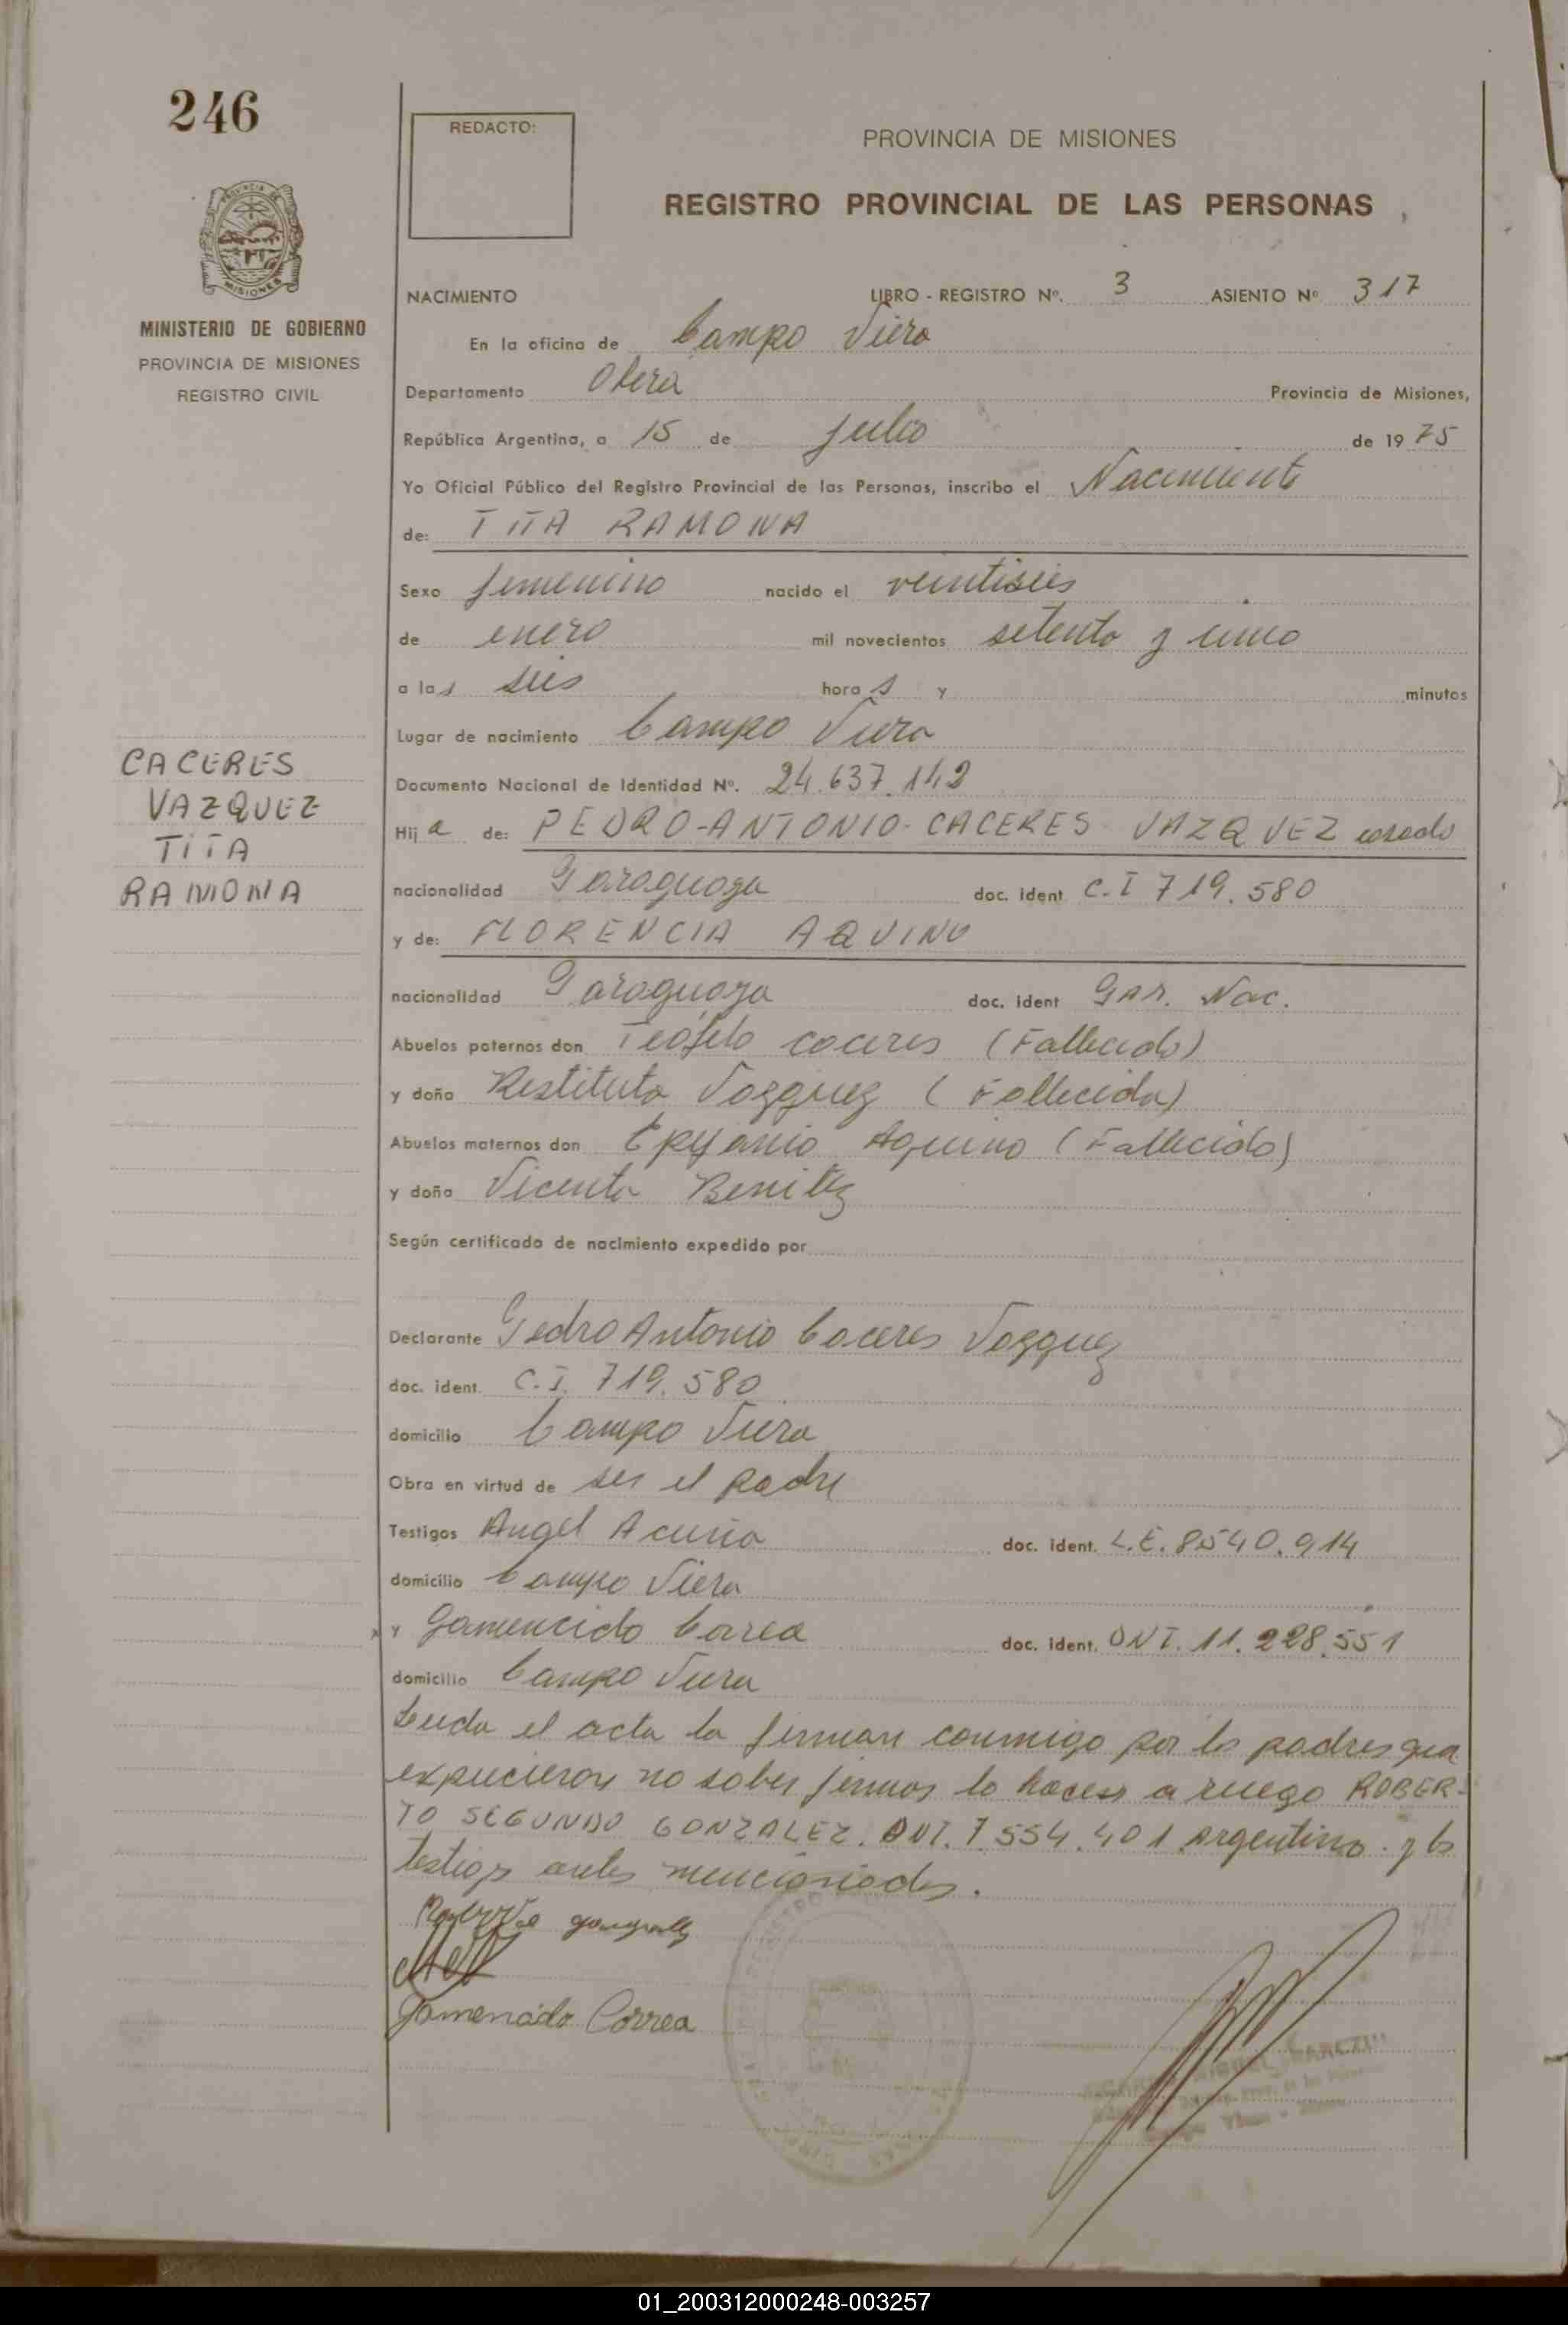 246
REDACTO:
PROVINCIA DE MISIONES
REGISTRO PROVINCIAL DE LAS PERSONAS
MISIONES
MINISTERIO DE GOBIERNO
PROVINCIA DE MISIONES
REGISTRO CIVIL
NACIMIENTO LIBRO - REGISTRO Nº. 3 ASIENTO Nº 317
En la oficina de Campo Viera
Departamento Obera Provincia de Misiones,
República Argentina, a 15 de julio de 1975
Yo Oficial Público del Registro Provincial de las Personas, inscribo el Nacimiento
de: TITA RAMONA
Sexo femenino nacido el veintiseis
de enero mil novecientos setenta y cinco
a las seis horas y minutos
Lugar de nacimiento Campo Viera
Documento Nacional de Identidad Nº. 24.637.142
CACERES
VAZQUEZ
TITA
RAMONA
Hija de: PEDRO-ANTONIO-CACERES VAZQUEZ casado
nacionalidad Paraguaya doc. ident C.I 719.580
y de: FLORENCIA AQUINO
nacionalidad Paraguaya doc. ident Par. Nac.
Abuelos paternos don Teofilo caceres (Fallecido)
y doña Restituta Vazquez (Fallecida)
Abuelos maternos don Epifanio Aquino (Fallecido)
y doña Vicenta Benitez
Según certificado de nacimiento expedido por
Declarante Pedro Antonio Caceres Vazquez
doc. ident. C.I. 719.580
domicilio Campo Viera
Obra en virtud de ser el padre
Testigos Angel Acuña doc. ident. L.E. 8540.914
domicilio Campo Viera
y doc. ident. DNI. 11.228.551
domicilio Campo Viera
Leida el acta la firman conmigo por los padres que
expucieron no saber firmar lo hacen a ruego ROBER-
TO SEGUNDO GONZALEZ. DNI. 7.554.401 argentino. y los
testigos antes mencionados.
Correa
01_200312000248-003257